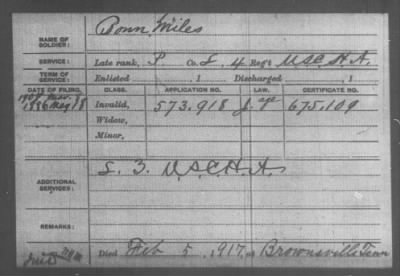 NAME OF SOLDIER: Bonn, Miles
SERVICE: Late rank, P Co. L, 4 Reg't U.S.C.H.A.
TERM OF SERVICE: Enlisted , 1 Discharged , 1
DATE OF FILING. CLASS. APPLICATION NO. LAW. CERTIFICATE NO.
1896 Aug 18 Invalid, 573.918 age 675.109
Widow,
Minor,
ADDITIONAL SERVICES: L. 3. U.S.C.H.A.
REMARKS:
Died Feb 5, 1917, at Brownsville Tenn